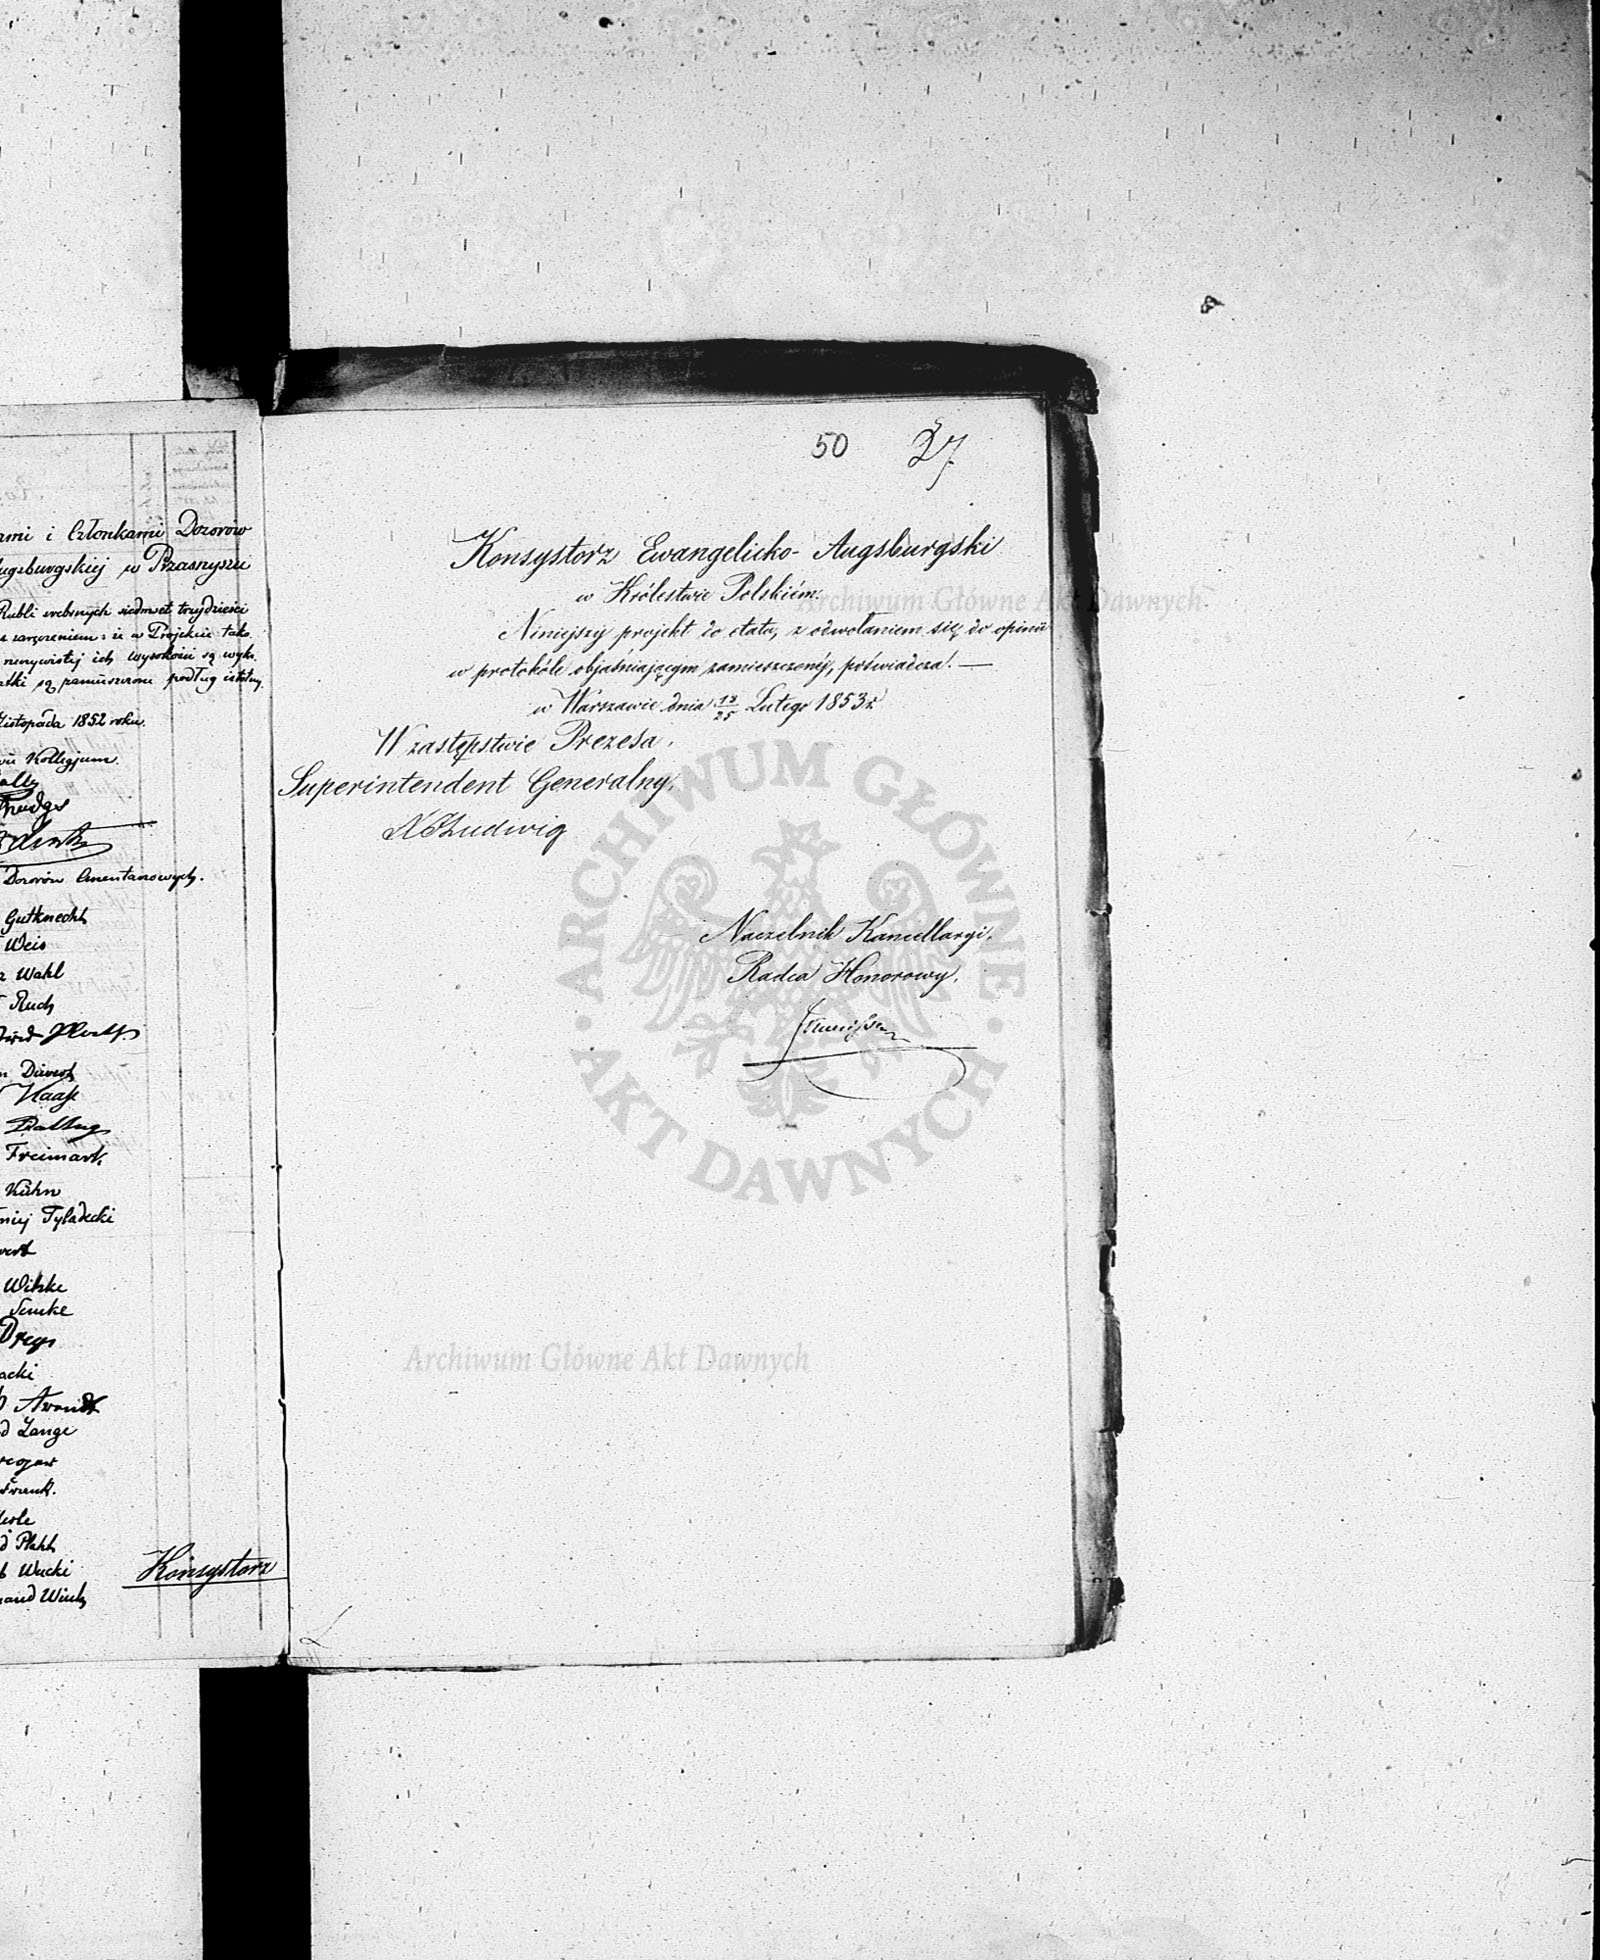 ami i Członkami Dozorów
ugsburgskiej w Przasnyszu
Rubli srebrnych siedmset trzydzieści
z zaręczeniem: iż w Projekcie tako
rzeczywistej ich wysokości są wyka
atki są zamieszczone podług istotny
Listopada 1852 roku.
Kollegjum.
Dozorów Cmentarzowych.
Gutknecht
Weis
Wahl
Ruch
Haase
Freimark
Kühn
Tyladecki
Witzke
Semke
acki
Arendt
d Lange
Frank.
d Plath
Wacki
nand
Konsystorz
50 27
Konsystorz Ewangelicko-Augsburgski
w Królestwie Polskiém.
Niniejszy projekt do etatu, z odwołaniem się do opinii
w protokóle objaśniającym zamieszczonéj, poświadcza. —
w Warszawie dnia 13/25 Lutego 1853 r.
W zastępstwie Prezesa,
Superintendent Generalny,
Ludwig
Naczelnik Kancellaryi,
Radca Honorowy,
Archiwum Główne Akt Dawnych
ARCHIWUM GŁÓWNE • AKT DAWNYCH •
Archiwum Główne Akt Dawnych